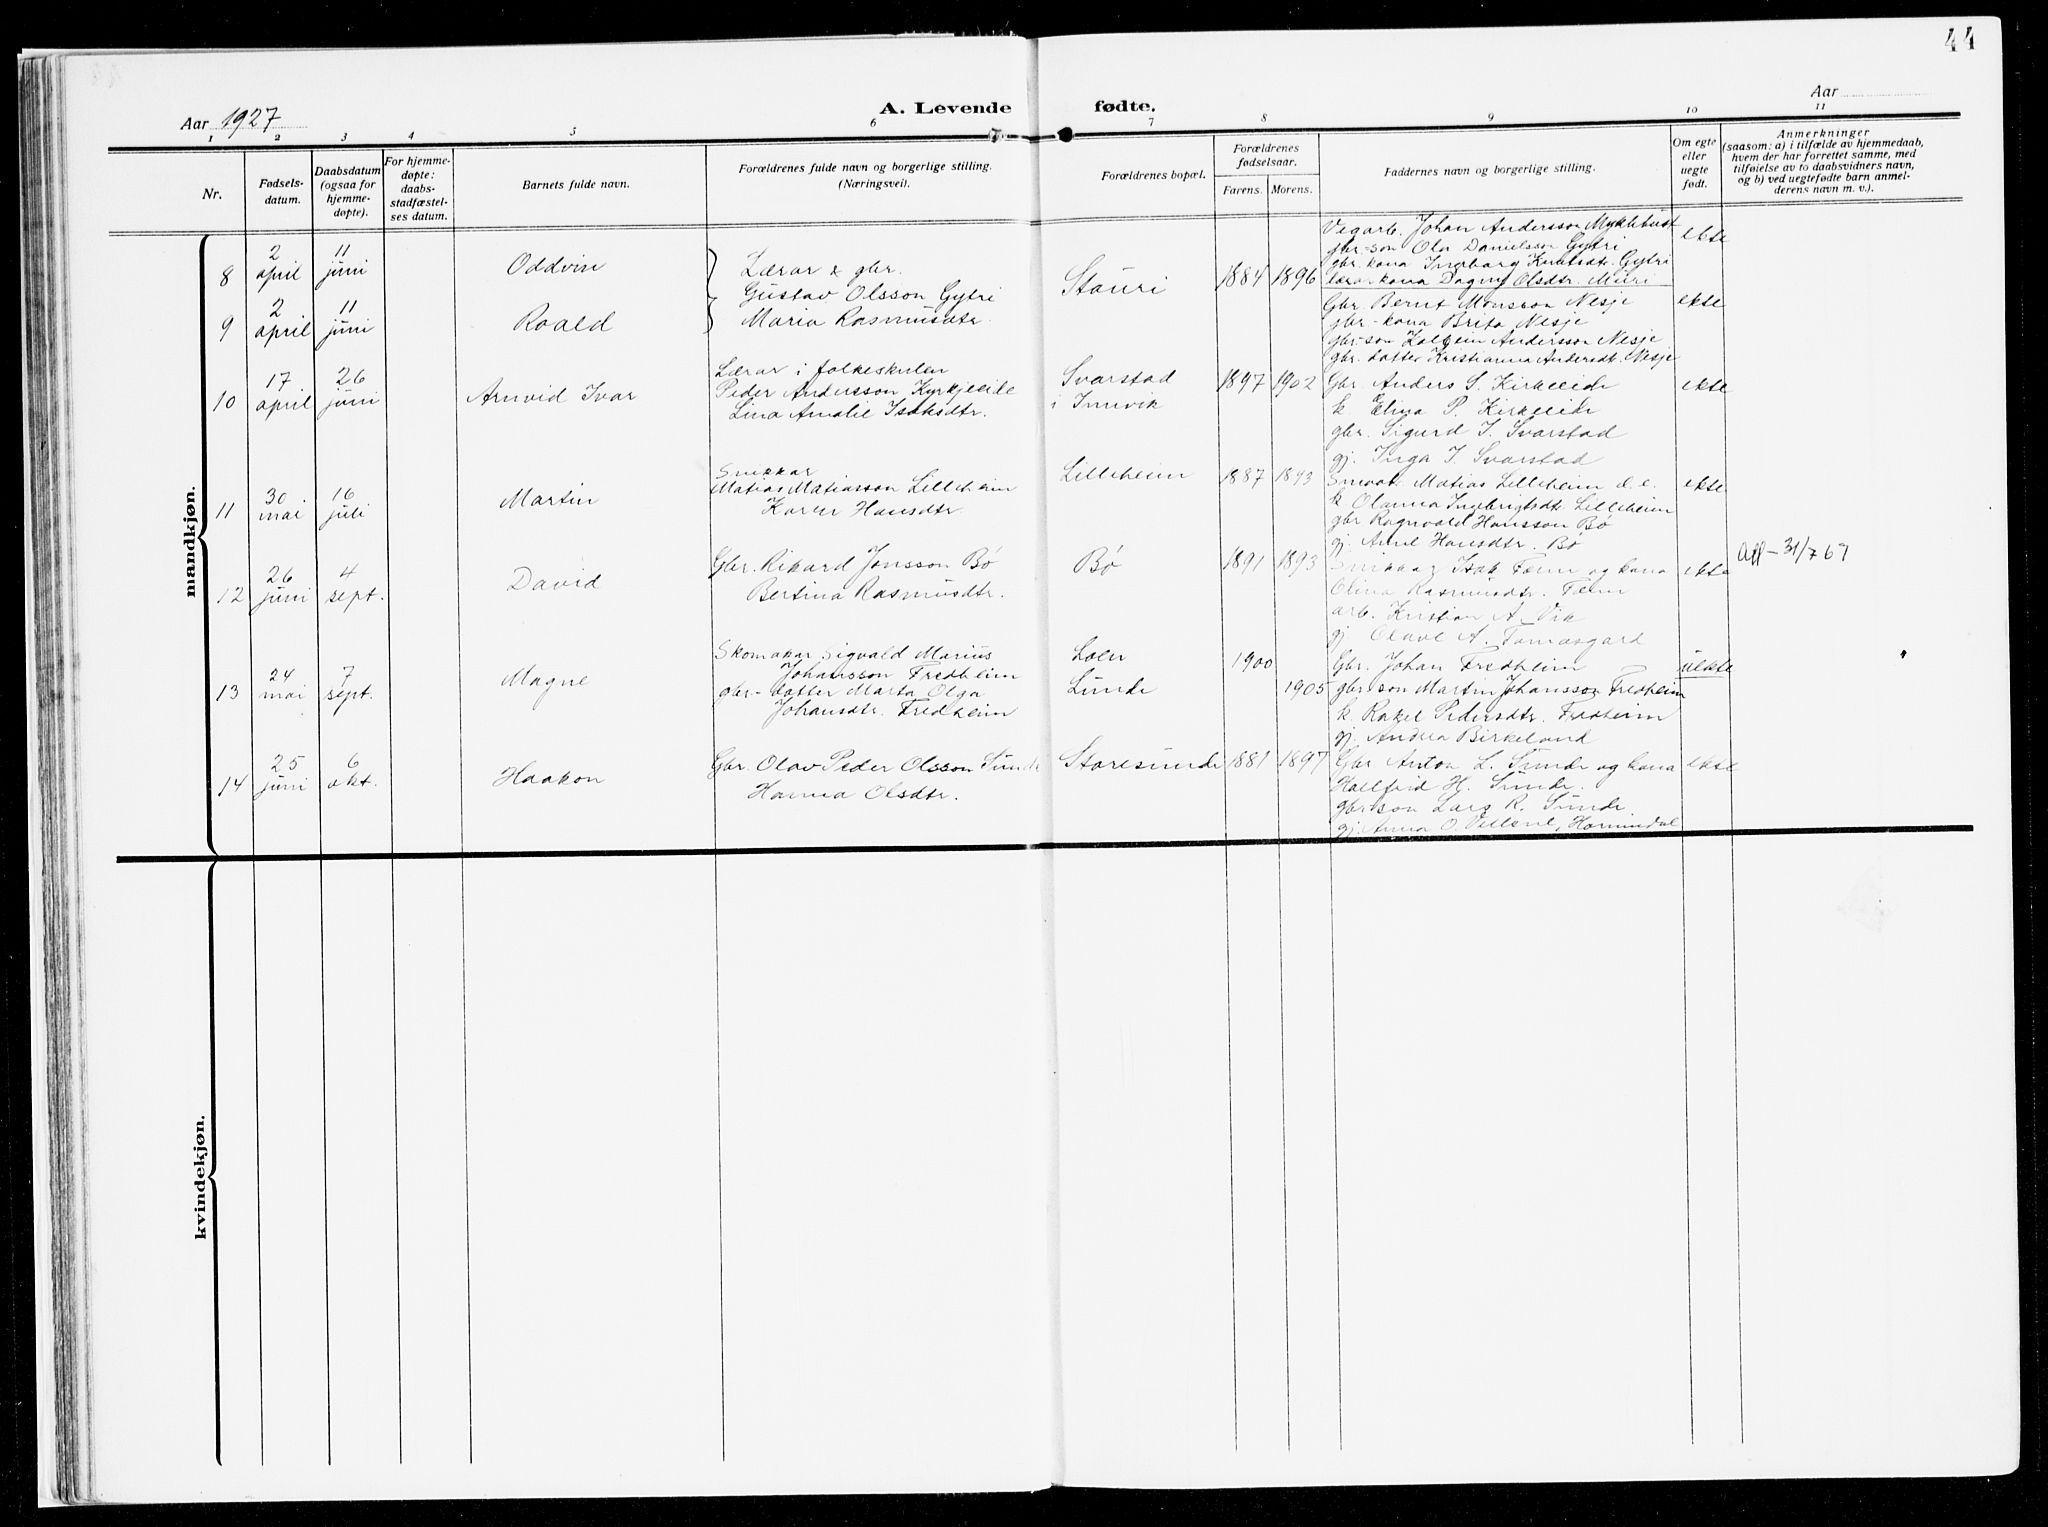 44
Aar 1927
A. Levende fødte.
Aar
1 2 3 4 5 6 7 8 9 10 11
Nr.
Fødsels-
datum.
Daabsdatum
(ogsaa for
hjemme-
døpte).
For hjemme-
døpte:
daabs-
stadfæstel-
ses datum.
Barnets fulde navn.
Forældrenes fulde navn og borgerlige stilling.
(Næringsvei).
Forældrenes bopæl.
Forældrenes
fødselsaar.
Farens. Morens.
Faddernes navn og borgerlige stilling.
Om egte
eller
uegte
født.
Anmerkninger
(saasom: a) i tilfælde av hjemmedaab,
hvem der har forrettet samme, med
tilføielse av to daabsvidners navn,
og b) ved uegtefødte barn anmel-
derens navn m. v.).
mandkjøn.
8
2
april
11
juni
Oddvin
Lærar & gbr.
Gustav Olsson Gytri
Maria Rasmusdtr.
Stauri
1884 1896
Vegarb. Johan Andersson Myklebust
gbr-son Ola Danielsson Gytri
gbr. kona Ingeborg Knutsdtr. Gytri
lærarkona Dagny Olsdtr. Muri
ekte
9
2
april
11
juni
Roald
Gbr. Bernt Monsson Nesje
gbr-kona Brita Nesje
gbr-son Kolbein Andersson Nesje
gbr. datter Kristianna Andersdt. Nesje
ekte
10
17
april
26
juni
Arnvid Ivar
Lærar i folkeskulen
Peder Andersson Kyrkjeeide
Lina Amalie Isaksdtr.
Svarstad
i Innvik
1897 1902
Gbr. Anders S. Kirkeeide
k. Elina P. Kirkeeide
gbr. Sigurd I. Svarstad
gj. Inga I. Svarstad
ekte
11
30
mai
16
juli
Martin
Snikkar
Matias Matiasson Lilleheim
Karen Hansdtr
Lilleheim
1887 1893
Matias Lilleheim d.e.
k. Olanna Ingebrigtsdtr Lilleheim
gbr Ragnvald Hansson Bø
gj. Hansdtr. Bø
ekte
12
26
juni
4
sept.
David
Gbr. Rikard Jonsson Bø
Bertina Rasmusdtr.
Bø
1891 1893
Snikkar Isak og kona
Olina Rasmusdtr.
arb. Kristian A. Vik
gj. Olave A. Tomasgard
ekte
31/7 67
13
24
mai
7
sept.
Magne
Skomakar Sigvald Marius
Johansson Fredheim
gbr-datter Marta Olga
Johansdtr. Fredheim
Loen
Lunde
1900
1905
Gbr. Johan Fredheim
gbr son Martin Johansson Fredheim
k. Rakel Pedersdtr. Fredheim
gj. Andrea Birkeland
uekte
14
25
juni
6
okt.
Haakon
Gbr. Olav Peder Olsson Sunde
Hanna Olsdtr.
Storesunde
1881 1897
Gbr Anton L. Sunde og kona
Hallfrid H. Sunde.
gbr son Lars R. Sunde
gj. Anna O. Hornindal
ekte
kvindekjøn.